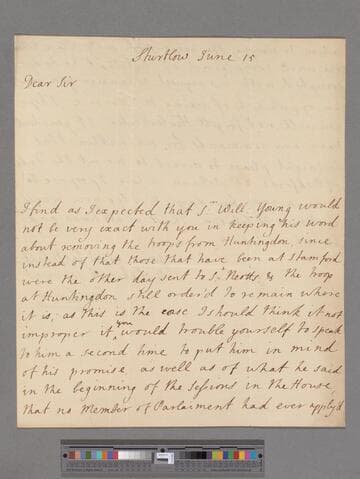 Sturtlow June 15
Dear Sir
I find as I expected that Sr Will. Young would
not be very exact with you in keeping his word
about removing the troops from Huntingdon, since
instead of that those that have been at Stamford
were the other day sent to St Neotts & the troop
at Huntingdon still order'd to remain where
it is; as this is the case I should think it not
improper if you would trouble yourself to speak
to him a second time to put him in mind
of his promise, as well as of what he said
in the beginning of the Sessions in the House
that no Member of Parlaiment had ever apply'd